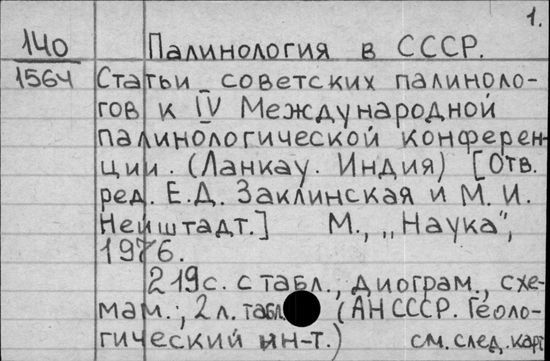 1.
140 Палинология в СССР.
1564 Статьи советских палиноло-
гов к IV Международной
палинологической конферен-
ции. (Ланкау. Индия) [Отв.
ред. Е.Д. Заклинская и М. И.
Нейштадт.] М., „Наука",
1976.
219с. с табл., диограм., схе-
мам.; 2 л. табл. (АН СССР. Геоло-
гический ин-т.) см. след. карт